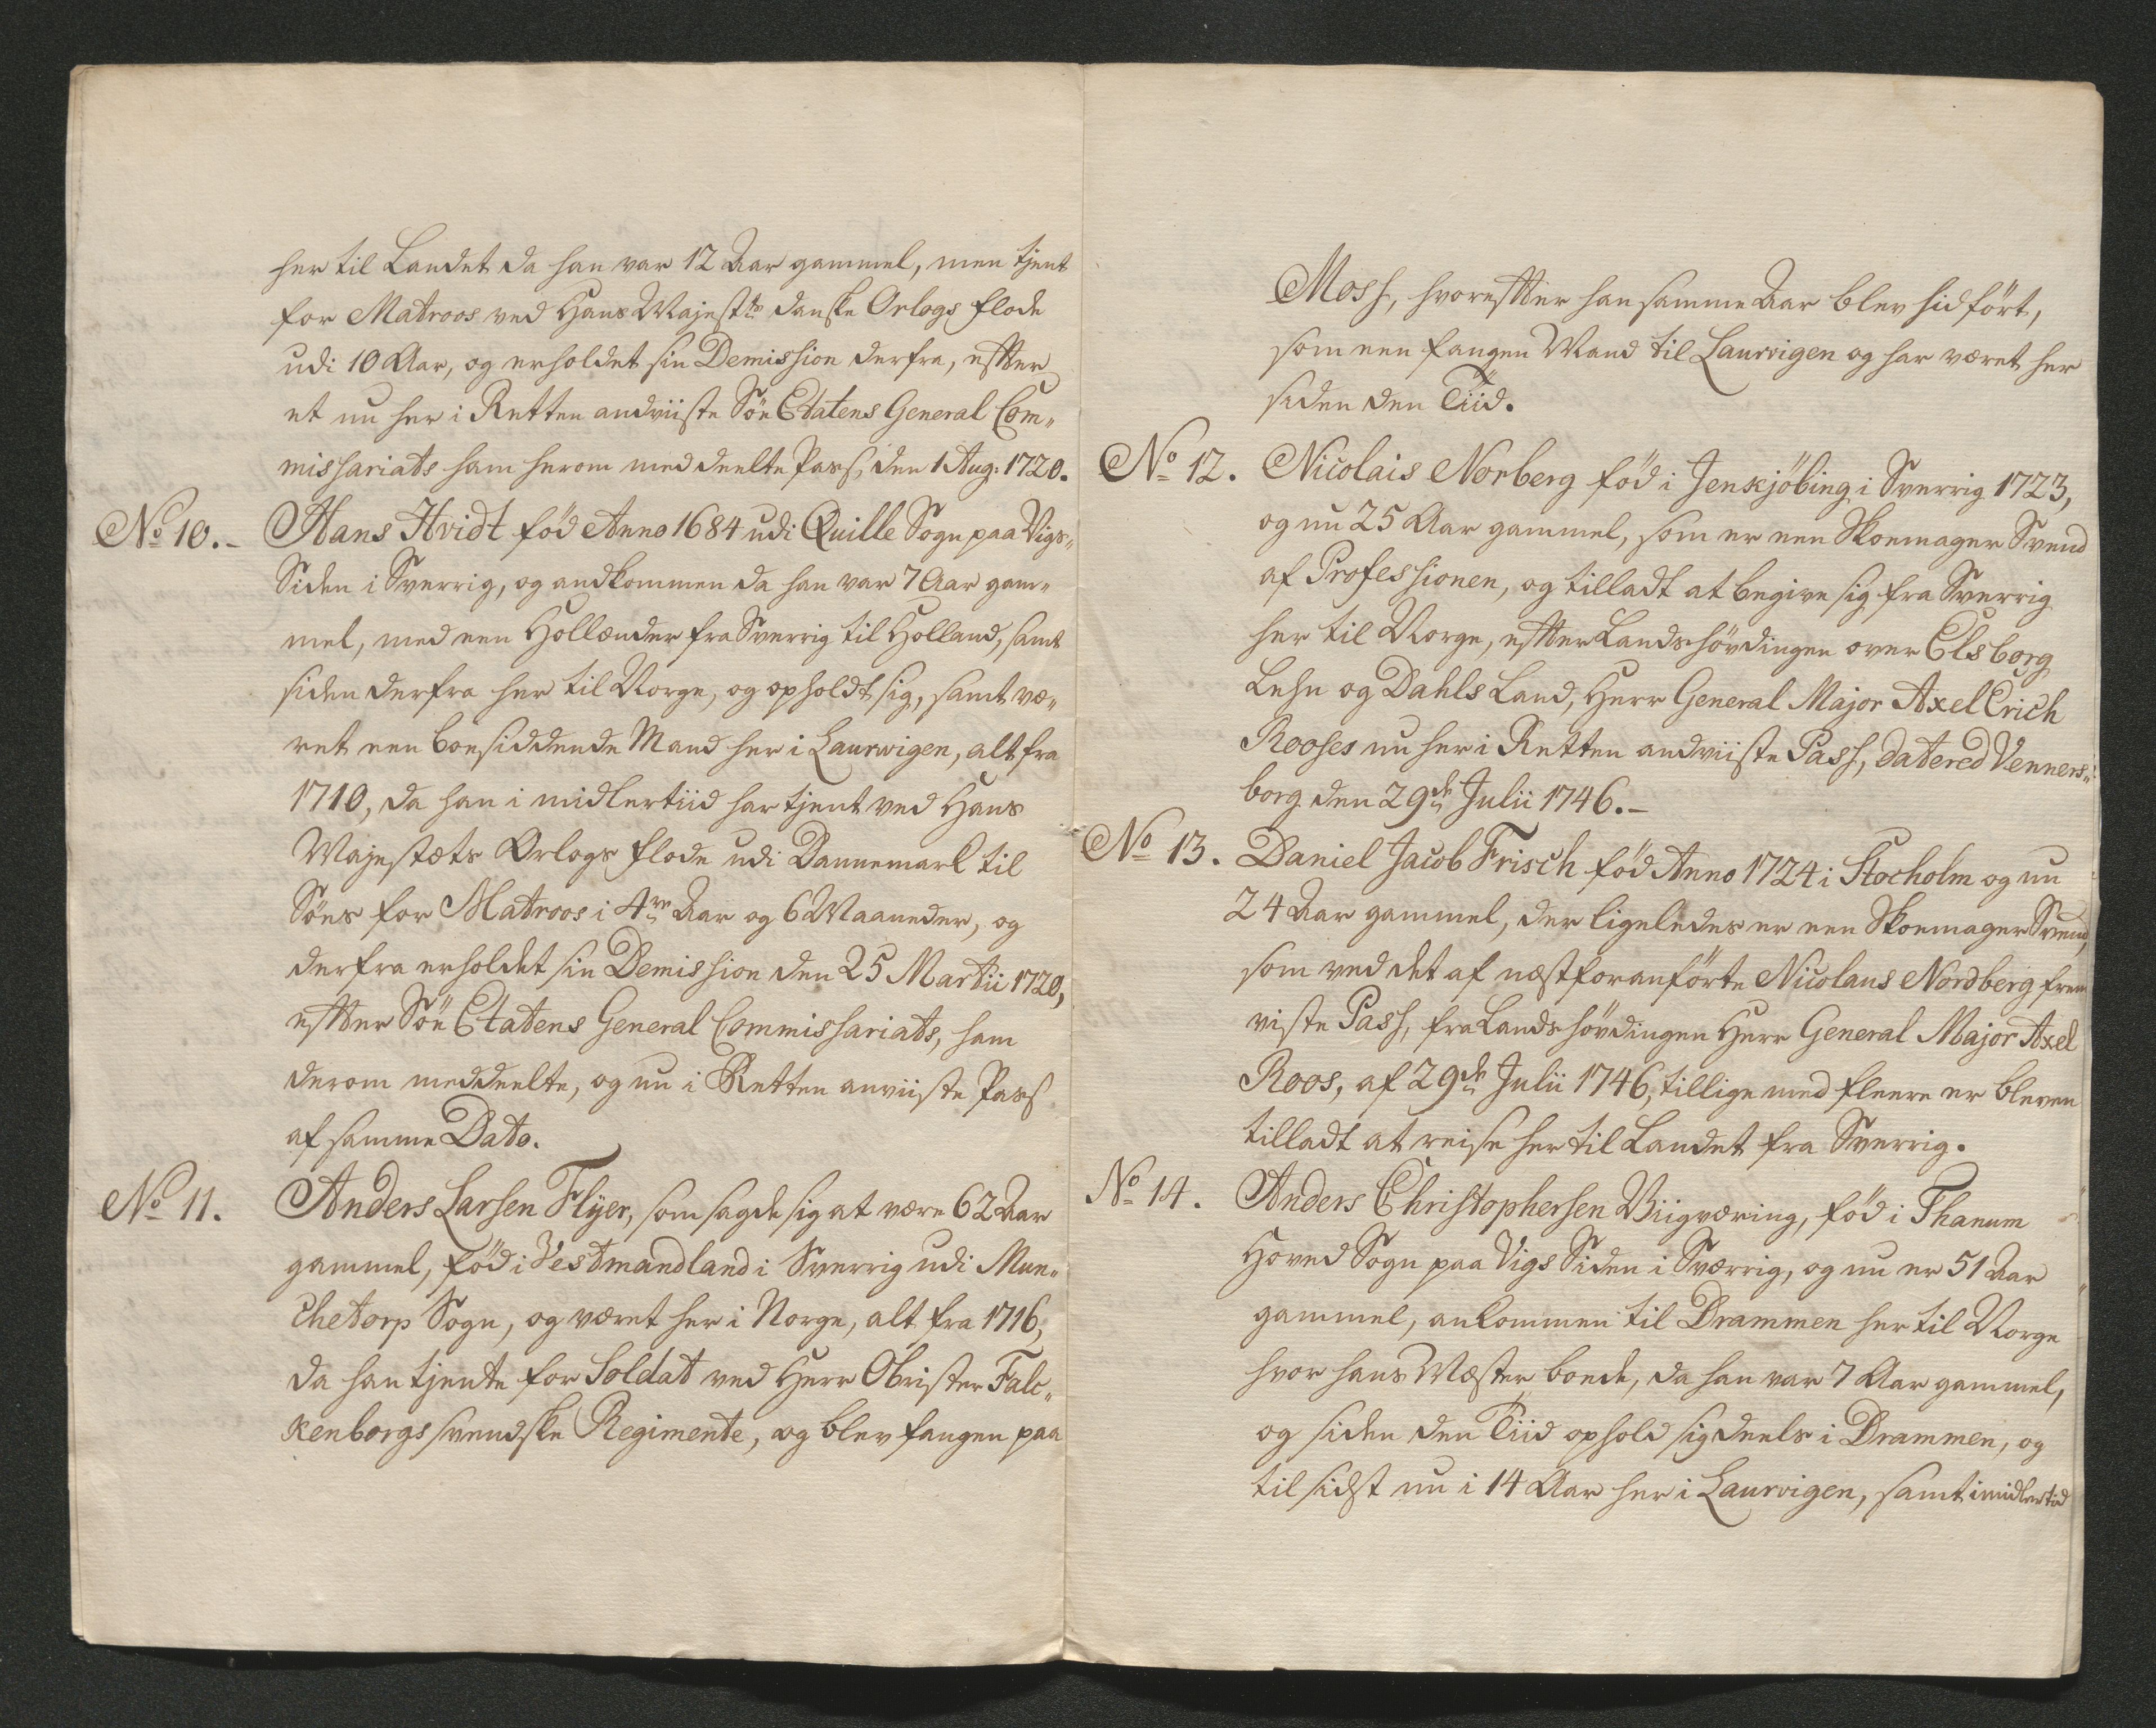 her til Landet da han var 12 Aar gammel, men tjent
for Matroos ved Hans Majestts danske Orlogs flode
udi 10 Aar, og erholdet sin Demission derfra, effter
et nu her i Retten andviiste Söe Etatens General Com„
missariats ham herom meddeelte Pass, den 1 Aug: 1720.
No 10.- Hans Hvidt föd Anno 1684 udi Quille Sogn paa Vigs„
Siden i Sverrig, og andkommen da han var 7 Aar gam„
mel, med een Hollænder fra Sverrig til Holland, samt
siden derfra her til Norge, og opholdt sig, samt væ„
ret een boesiddende Mand her i Laurvigen, alt fra
1710, da han i midlertiid har tjent ved Hans
Majestæts Orlogs flode udi Dannemark til
Söes for Matroos i 4re Aar og 6 Maaneder, og
derfra erholdet sin Demission den 25 Martii 1720,
effter Söe Etatens General Commissariats, ham
derom meddeelte, og nu i Retten anviiste Pass
af samme Dato.
No 11. Anders Larsen Flÿer, som sagde sig at være 62 Aar
gammel, föd i Vestmandland i Sverrig udi Mun„
chetorp Sogn, og været her i Norge, alt fra 1716,
da han tjente for Soldat ved Herr Obrister Falc„
kenborgs svendske Regimente, og blev fangen paa
Moss, hvoreffter han samme Aar blev hidfört,
som een fangen Mand til Laurvigen og har været her
siden den Tiid.
No 12. Nicolais Norberg föd i Jenskjöbing i Sverrig 1723,
og nu 25 Aar gammel, som er een Skoemager Svend
af Professionen, og tilladt at begive sig fra Sverrig
her til Norge, effter Landshövdingen over Elsborg
Lehn og Dahls Land, Herr General Major Axel Erich
Rooses nu her i Retten andviiste Pass, datered Venners„
borg den 29de Julii 1746.-
No 13. Daniel Jacob Frisch föd Anno 1724 i Stocholm og nu
24 Aar gammel, der ligeledes er een Skoemager Svend,
som ved det af næstforanförte Nicolaus Nordberg frem
viste Pass, fra Landshövdingen Herr General Major Axel
Roos, af 29de Julii 1746, tillige med fleere er bleven
tilladt at reise her til Landet fra Sverrig.
No 14. Anders Christophersen Viigværing, föd i Thanum
Hoved Sogn paa Vigs Siden i Sværrig, og nu er 51 Aar
gammel, ankommen til Drammen her til Norge
hvor hans Mæster boede, da han var 7 Aar gammel,
og siden den Tiid ophold sig deels i Drammen, og
til sidst nu i 14 Aar her i Laurvigen, samt imidlertid